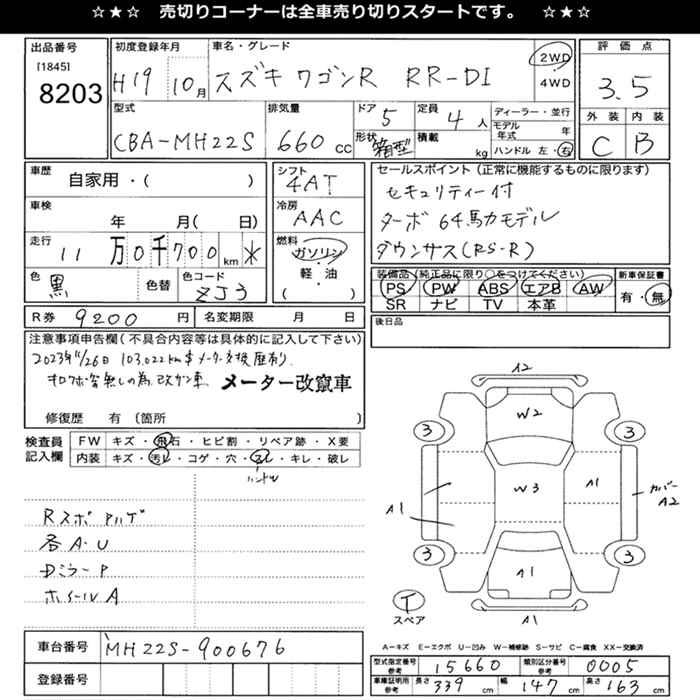 ☆★☆ 売切りコーナーは全車売り切りスタートです。 ☆★☆
出品番号
[1845]
8203
初度登録年月
H19 10月
車名・グレード
スズキ ワゴンR RR-DI
2WD
4WD
評価点
3.5
外装 内装
C B
型式
CBA-MH22S
排気量
660 cc
ドア
5
形状
箱型
定員
4人
積載
kg
ディーラー・並行
モデル年式 年
ハンドル 左・右
車歴
自家用・( )
車検
年 月( 日)
走行
11万0千700km *
色
黒
色替
色コード
ZJ3
シフト
4AT
冷房
AAC
燃料
ガソリン・
軽・油
( )
セールスポイント(正常に機能するものに限ります)
セキュリティー付
ターボ 64馬力モデル
ダウンサス(RS-R)
装備品(純正品に限り○をつけてください)
PS PW ABS エアB AW
SR ナビ TV 本革
新車保証書
有・無
後日品
R券 9200円
名変期限 月 日
注意事項申告欄(不具合内容等は具体的に記入して下さい)
2023年11/26日 103,022km$メーター交換歴有り
メーター改竄車
修復歴 有(箇所 )
検査員記入欄
FW キズ・飛石・ヒビ割・リペア跡・X要
内装 キズ・汚レ・コゲ・穴・スレ・キレ・破レ
ハンドル
Rスポ
各A・U
DミラーP
ホイールA
A2
W2
3 3
W3
A1
A1
カバー
A2
3 3
A1
T
スペア
A1
A=キズ E=エクボ U=凹み W=補修跡 S=サビ C=腐食 XX=交換済
車台番号
MH22S-900676
登録番号
型式指定番号
参考
15660
類別区分番号
参考
0005
車庫証明用
参考
長さ 339 cm
幅 147 cm
高さ 163 cm